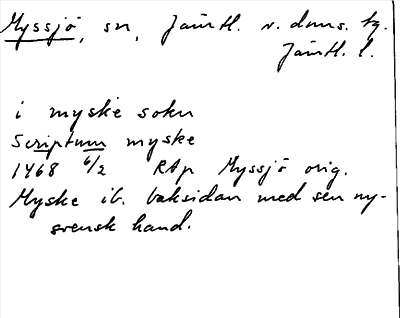 Myssjö, sn, Jämtl. v. doms. tg.
Jämtl. l.
i myske sokn
Scriptum myske
1468 6/2 RAp Myssjö orig.
Myske ib. baksidan med sen ny-
svensk hand.